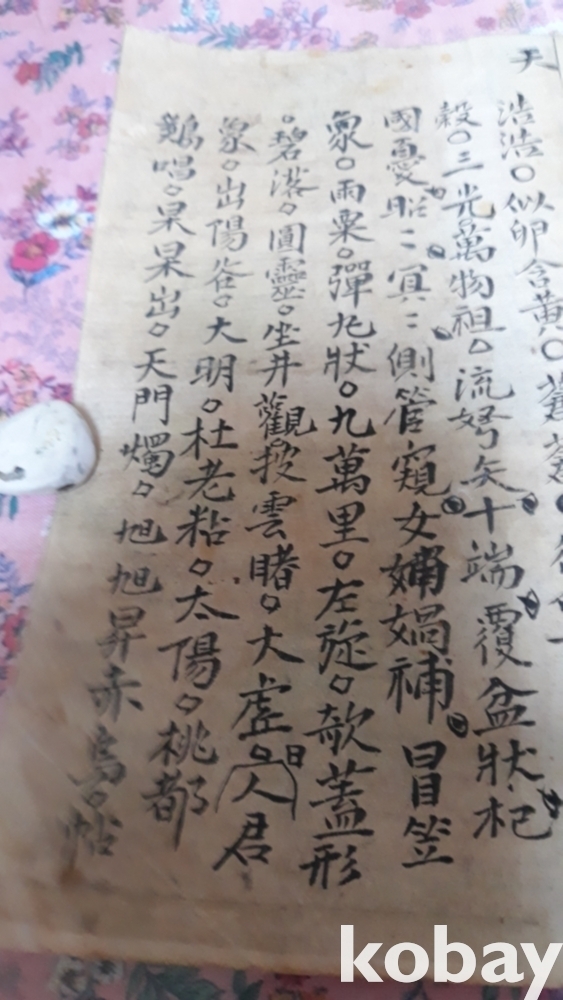 天
浩浩○似卵含黃○蒼蒼
穀○三光萬物祖○流弩矢十端覆盆狀杞
國憂昭〻冥〻側管窺女媧媧補冒笠
象○雨粟○彈丸狀○九萬里○左旋○欹蓋形
○碧落○圓靈○坐井觀○披雲睹○大虛○日人君
象○出陽谷○大明○杜老粘○太陽○桃都
鷄唱○杲杲出○天門燭○旭旭昇赤烏○帖
kobay